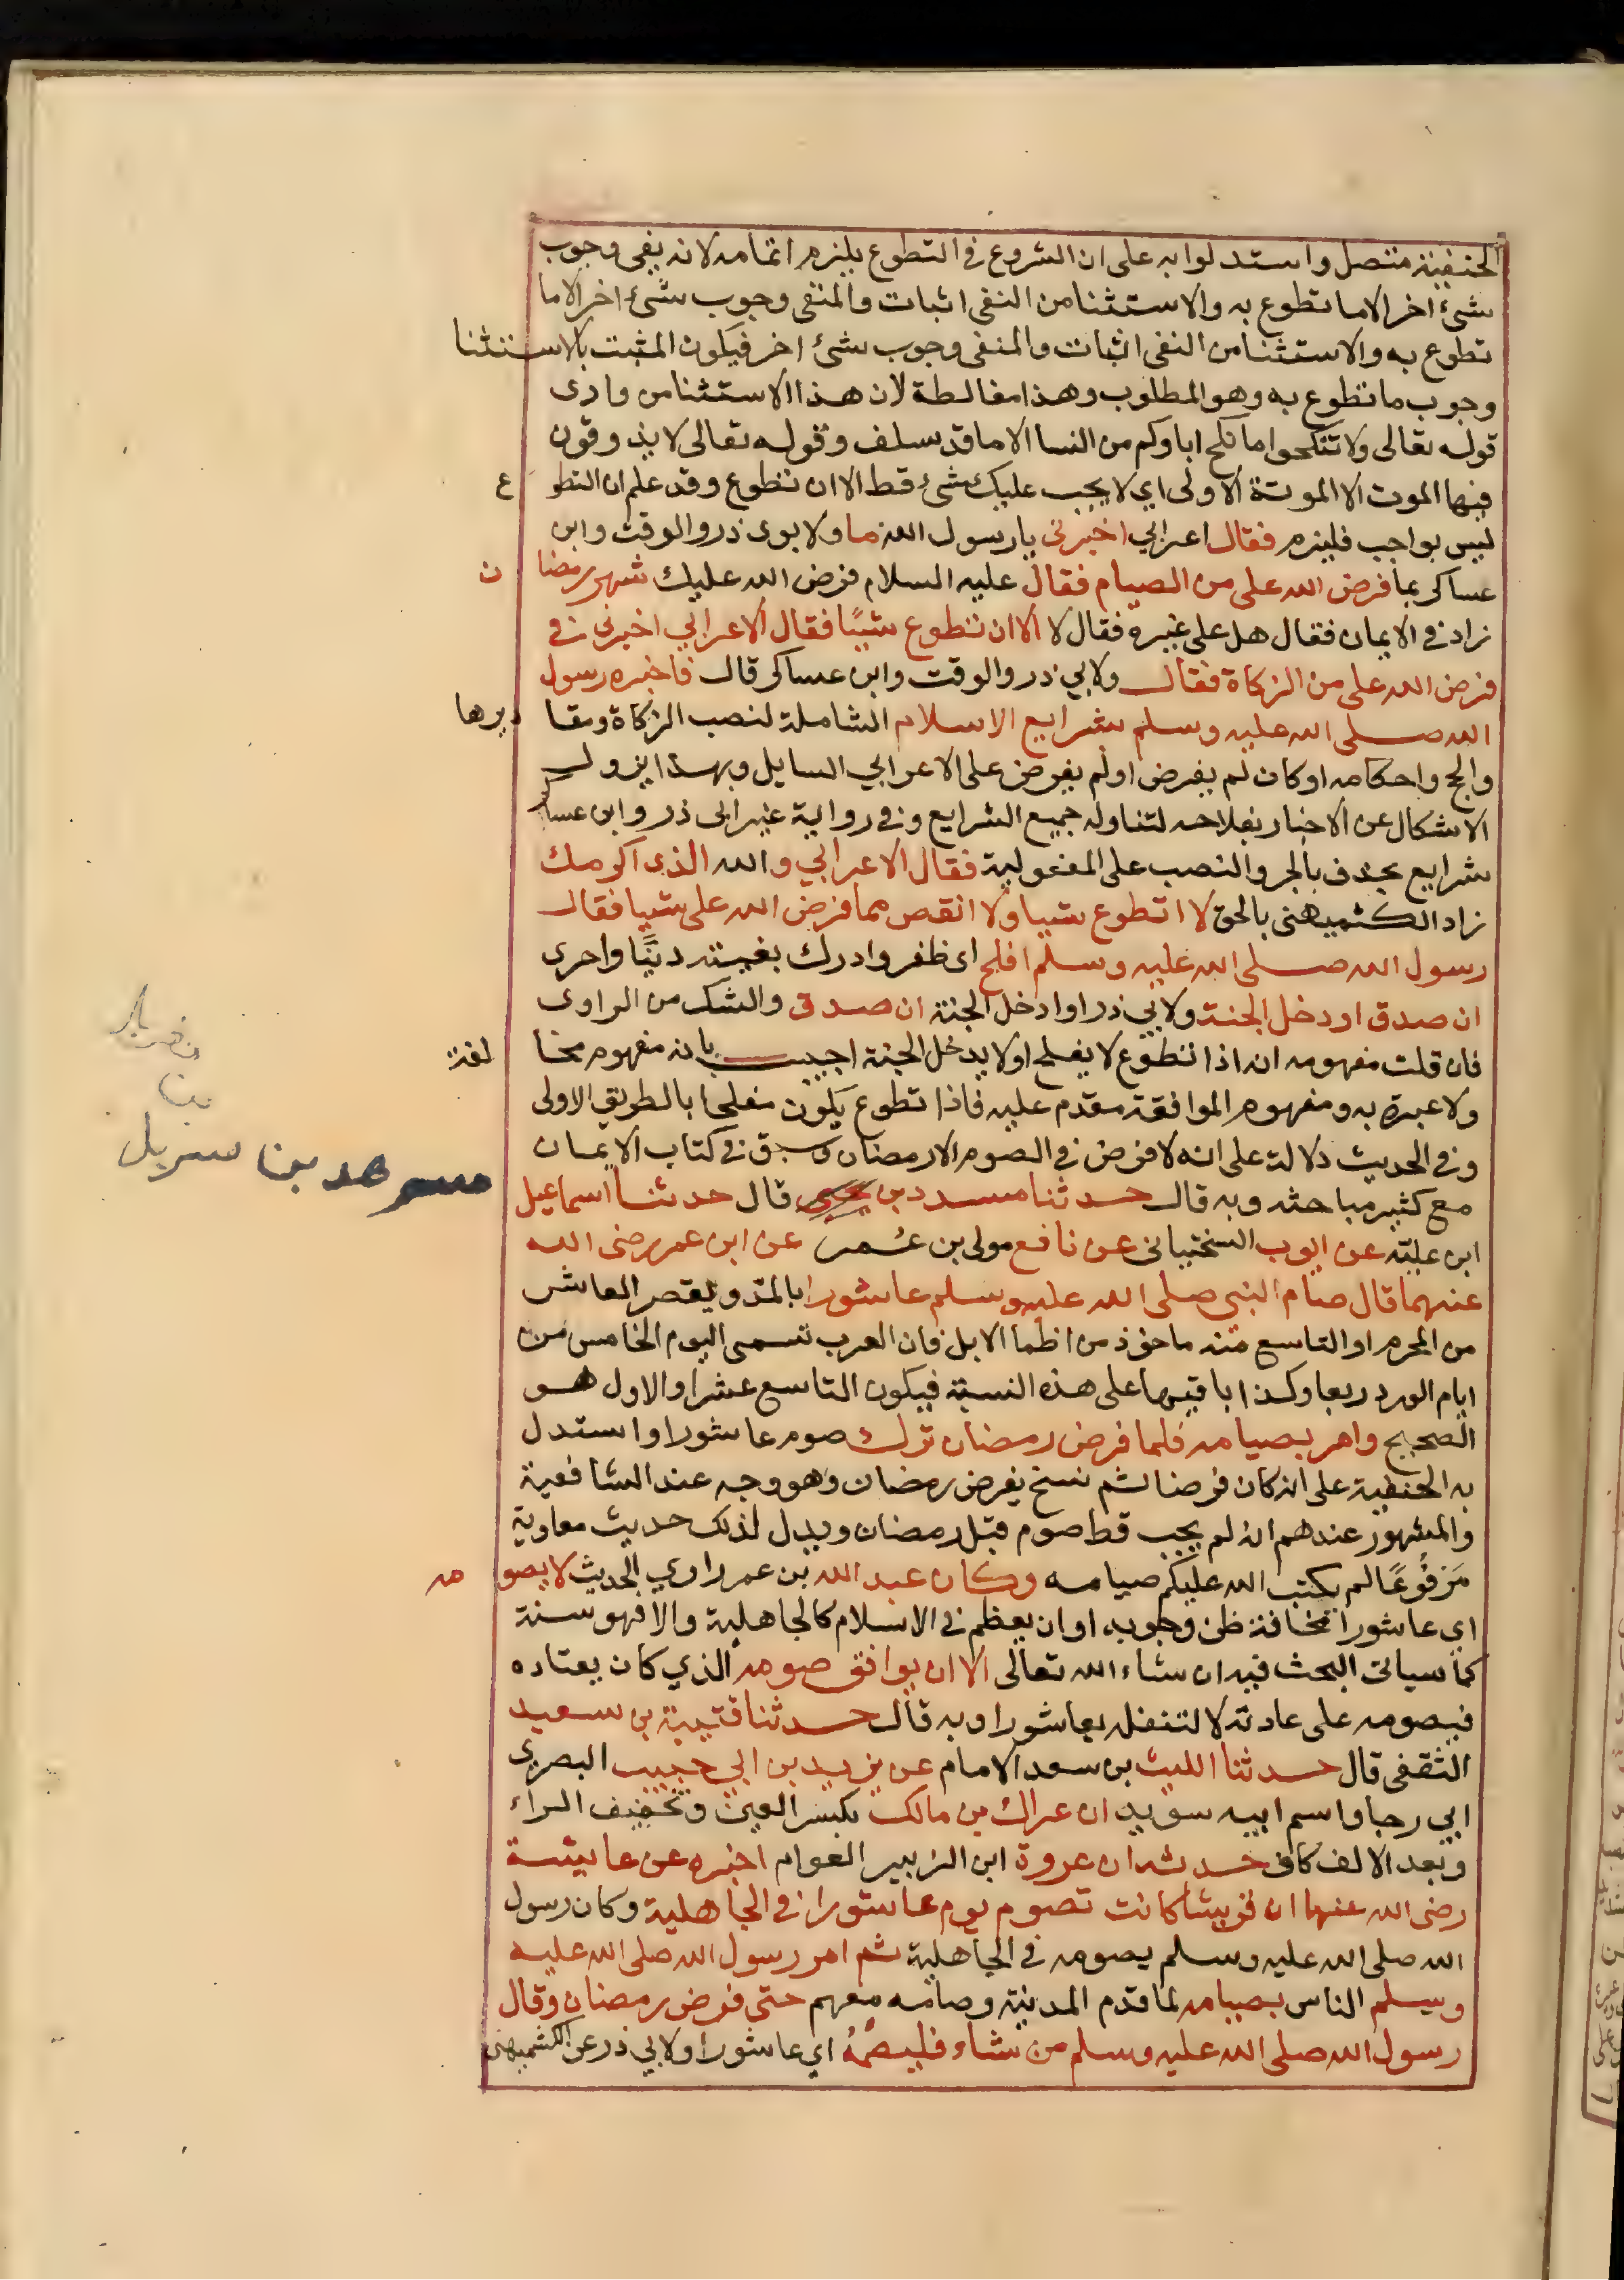 الحنفية متصل واستدلوا به على ان الشروع في التطوع يلزم اتمامه لانه يفى وجوب
شيء اخر الا ما تطوع به والاستثنا من النفى اثبات والمنفى وجوب شئ اخر الاما
تطوع به والاستثنا من النفى اثبات والمنفى وجوب شئ اخر فيكون المثبت بالاستثنا
وجوب ما تطوع به وهو المطلوب وهذا مغالطة لان هذا الاستثنا من وادى
قوله تعالى ولا تنكحوا ما نكح اباوكم من النسا الا ما قد سلف وقوله تعالى لا يذوقون
فيها الموت الا الموتة الاولى اي لا يجب عليك شئ قط الا ان تطوع وقد علم ان التطوع
ليس بواجب فليزم فقال اعرابي اخبرنى يا رسول الله ما ولابوى ذر والوقت وابن
عساكر بما فرض الله على من الصيام فقال عليه السلام فرض الله عليك شهر رمضان
زاد في الايمان فقال هل على غيره فقال لا الا ان تطوع شيئًا فقال الاعرابي اخبرنى
فرض الله على من الزكاة فقال ولابي ذر والوقت وابن عساكر قال فاخبره رسول
الله صلى الله عليه وسلم شرايع الاسلام الشاملة لنصب الزكاة ومقاديرها
والحج واحكامه اوكان لم يفرض اولم يفرض على الاعرابي السايل وبهذا يزول
الاشكال عن الاخبار بفلاحه لتناوله جميع الشرايع وفي رواية غير ابى ذر وابن عساكر
شرايع بحذف بالجر والنصب على المفعولية فقال الاعرابي والله الذى اكرمك
زاد الكشميهنى بالحق لا اتطوع شيا ولا انقص مما فرض الله على شيا فقال
رسول الله صلى الله عليه وسلم افلح اى ظفر وادرك بغيته دنيًا واخرى
ان صدق او دخل الجنة ولابي ذر او ادخل الجنة ان صدق والشك من الراوى
فان قلت مفهومه انه اذا تطوع لا يفلح او لا يدخل الجنة اجيب بانه مفهوم مخالفة
ولا عبرة به ومفهوم الموافقة مقدم عليه فاذا تطوع يكون مفلحا بالطريق الاولى
وفي الحديث دلالة على انه لا فرض في الصوم الا رمضان وسبق في كتاب الايمان
مع كثير مباحثه وبه قال حدثنا مسدد بن قال حدثنا اسماعيل
مسرهد بن
ابن علية عن ايوب السختيانى عن نافع مولى بن عُمر عن ابن عمر رضى الله
عنهما قال صام النبى صلى الله عليه وسلم عاشورا بالمد ويقصر العاشر
من المحرم او التاسع منه ماخوذ من اظما الابل فان العرب تسمى اليوم الخامس من
ايام الورد ربعا وكذا باقيها على هذه النسبة فيكون التاسع عشرا والاول هو
الصحيح وامر بصيامه فلما فرض رمضان ترك صوم عاشورا واستدل
به الحنفية على انه كان فرضا ثم نسخ بفرض رمضان وهو وجه عند الشافعية
والمشهور عندهم انه لم يجب قط صوم قبل رمضان ويدل لذلك حديث معاوية
مَرفُوعًا لم يكتب الله عليكم صيامه وكان عبد الله بن عمر راوي الحديث لا يصومه
اي عاشورا مخافة ظن وجوبه او ان يعظم في الاسلام كالجاهلية والا فهو سنة
كما سياتى البحث فيه ان شاء الله تعالى الا ان يوافق صومه الذي كان يعتاده
فيصومه على عادته لا لتنفله بعاشورا وبه قال حدثنا قتيبة بن سعيد
الثقفى قال حدثنا الليث بن سعد الامام عن يزيد بن ابي حبيب البصرى
ابي رجا واسم ابيه سويد ان عراك بن مالك بكسر العين وتخفيف الراء
وبعد الالف كاف حدثه ان عروة ابن الزبير العوام اخبره عن عايشة
رضى الله عنها ان قريشا كانت تصوم يوم عاشورا في الجاهلية وكان رسول
الله صلى الله عليه وسلم يصومه في الجاهلية ثم امر رسول الله صلى الله عليه
وسلم الناس بصيامه لما قدم المدينة وصامه معهم حتى فرض رمضان وقال
رسول الله صلى الله عليه وسلم من شاء فليصُمْهُ اي عاشورا ولابي ذر عن الكشميهنى